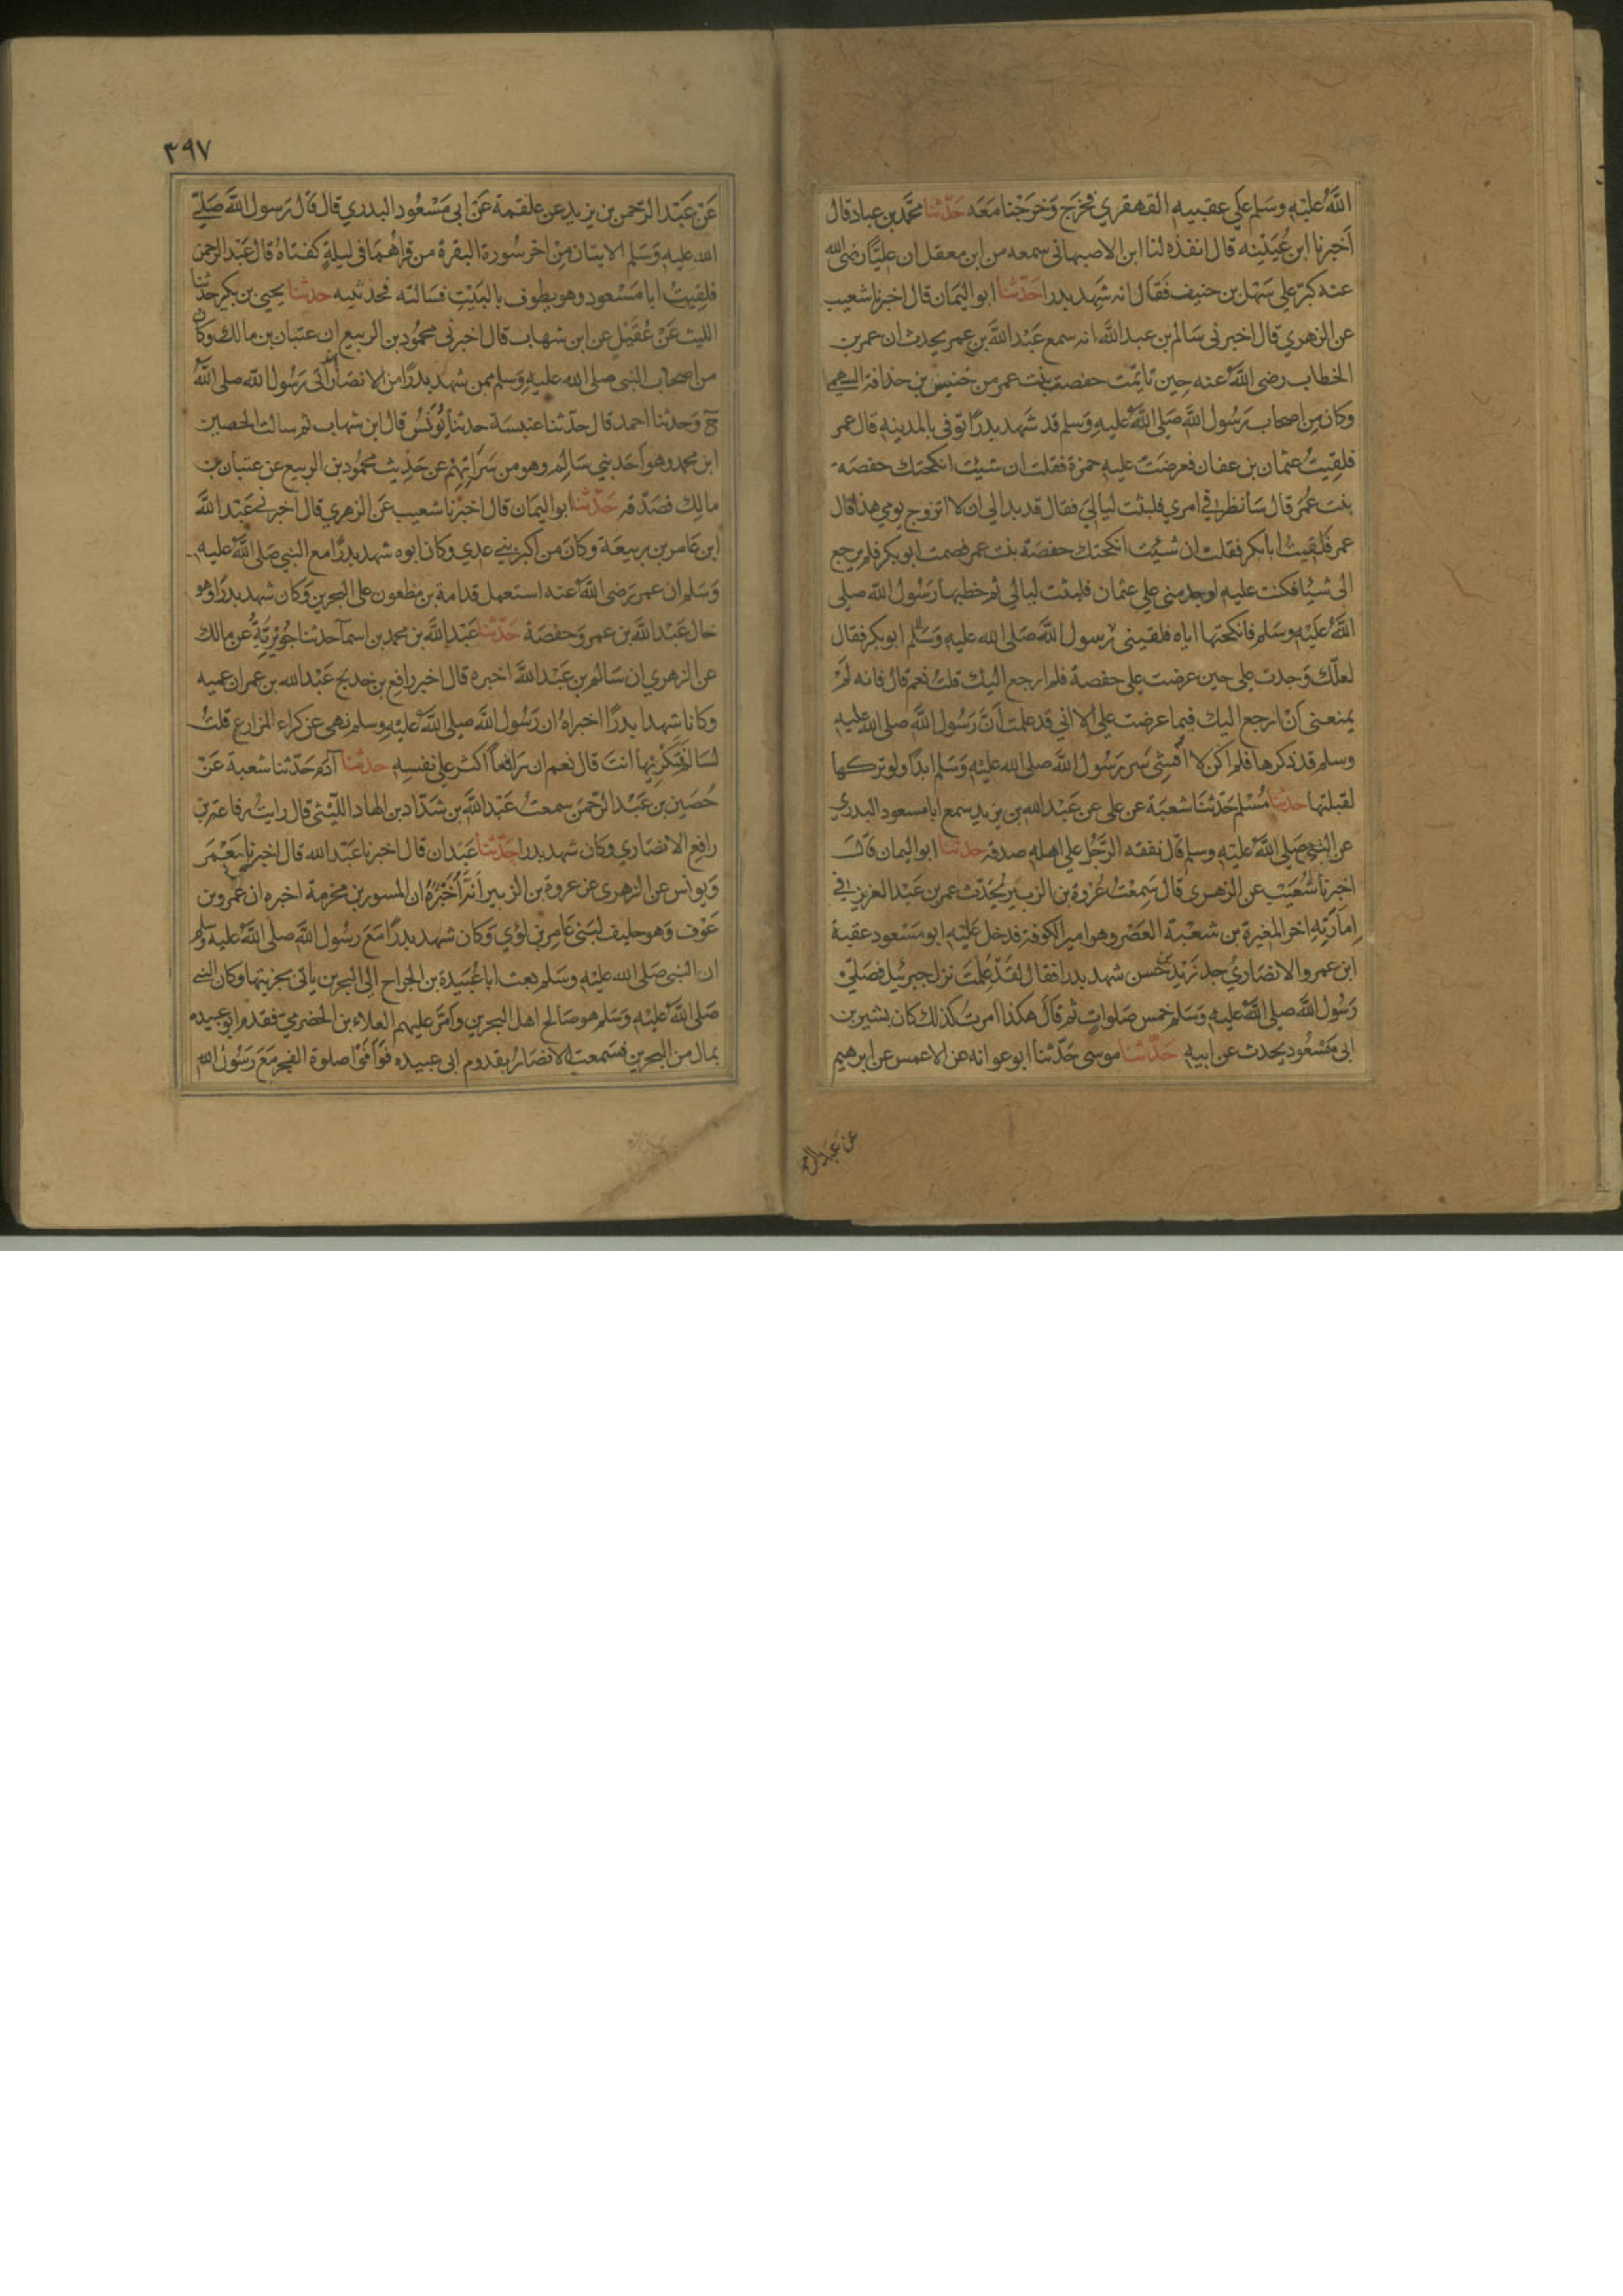 الله عليه وسلم علي عقبيه القهقري فخرج وخرجنا معه حدثنا محمد بن عباد قال
اخبرنا ابن عيينه قال انفذه لنا ابن الاصبهاني سمعه من ابن معقل ان عليا رضي الله
عنه كبر علي سهل بن حنيف فقال انه شهد بدرا حدثنا ابو اليمان قال اخبرنا شعيب
عن الزهري قال اخبرني سالم بن عبد الله انه سمع عبد الله بن عمر يحدث ان عمر بن
الخطاب رضي الله عنه حين تايمت حفصة بنت عمر من خنيس بن حذافة السهمي
وكان من اصحاب رسول الله صلي الله عليه وسلم قد شهد بدرا توفي بالمدينه قال عمر
فلقيت عثمان بن عفان فعرضت عليه فقلت ان شئت انكحتك حفصة
بنت عمر قال سانظر في امري فلبثت ليالي فقال قد بدا لي ان لا اتزوج يومي هذا قال
عمر فلقيت ابا بكر فقلت ان شئت انكحتك حفصة بنت عمر فصمت ابو بكر فلم يرجع
الي شيئا فكنت عليه اوجد مني علي عثمان فلبثت ليالي ثم خطبها رسول الله صلي
الله عليه وسلم فانكحتها اياه فلقيني ابو بكر فقال
لعلك وجدت علي حين عرضت علي حفصة فلم ارجع اليك قلت نعم قال فانه لم
يمنعني ان ارجع اليك فيما عرضت علي الا اني قد علمت ان رسول الله صلي الله عليه
وسلم قد ذكرها فلم اكن لا افشي سر رسول الله صلي الله عليه وسلم ابدا ولو تركها
لقبلتها حدثنا مسلم حدثنا شعبة عن علي عن عبد الله بن يزيد سمع ابا مسعود البدري
عن النبي صلي الله عليه وسلم قال نفقه الرجل علي اهله صدقة حدثنا ابو اليمان قال
اخبرنا شعيب عن الزهري قال سمعت عروة بن الزبير يحدث عمر بن عبد العزيز في
امارته اخر المغيرة بن شعبة العصر وهو امير الكوفة فدخل عليه ابو مسعود عقبة
ابن عمرو الانصاري جد زيد بن حسن شهد بدرا فقال لقد علمت نزل جبرئيل فصلي
رسول الله صلي الله عليه وسلم خمس صلوات ثم قال هكذا امرت كذلك كان بشير بن
ابي مسعود يحدث عن ابيه حدثنا موسى حدثنا ابو عوانه عن الاعمش عن ابرهيم
عن عبد الرحمن
٣٩٧
عن عبد الرحمن بن يزيد عن علقمة عن ابي مسعود البدري قال قال رسول الله صلي
الله عليه وسلم الايتان من اخر سورة البقرة من قراهما في ليلة كفتاه قال عبد الرحمن
فلقيت ابا مسعود وهو يطوف بالبيت فسالته فحدثنيه حدثنا يحيى بن بكير حدثنا
الليث عن عقيل عن ابن شهاب قال اخبرني محمود بن الربيع ان عتبان بن مالك وكان
من اصحاب النبي صلى الله عليه وسلم ممن شهد بدرا من الانصار انه اتى رسول الله صلى الله
ح وحدثنا احمد قال حدثنا عنبسة حدثنا يونس قال ابن شهاب ثم سالت الحصين
ابن محمد وهو احد بني سالم وهو من سراتهم عن حديث محمود بن الربيع عن عتبان بن
مالك فصدقه حدثنا ابو اليمان قال اخبرنا شعيب عن الزهري قال اخبرني عبد الله
ابن عامر بن ربيعة وكان من اكبر بني عدي وكان ابوه شهد بدرا مع النبي صلى الله عليه
وسلم ان عمر رضى الله عنه استعمل قدامة بن مظعون على البحرين وكان شهد بدرا وهو
خال عبد الله بن عمر وحفصة حدثنا عبد الله بن محمد بن اسما حدثنا جويرية عن مالك
عن الزهري ان سالم بن عبد الله اخبره قال اخبر رافع بن خديج عبد الله بن عمر ان عميه
وكانا شهدا بدرا اخبراه ان رسول الله صلي الله عليه وسلم نهى عن كراء المزارع قلت
لسالم فتكريها انت قال نعم ان رافعا اكثر على نفسه حدثنا آدم حدثنا شعبة عن
حصين بن عبد الرحمن سمعت عبد الله بن شداد بن الهاد الليثي قال رايت رفاعة بن
رافع الانصاري وكان شهد بدرا حدثنا عبدان قال اخبرنا عبد الله قال اخبرنا معمر
ويونس عن الزهري عن عروة بن الزبير انه اخبره ان المسور بن مخرمة اخبره ان عمرو بن
عوف وهو حليف لبني عامر بن لؤي وكان شهد بدرا مع رسول الله صلى الله عليه وسلم
ان النبي صلى الله عليه وسلم بعث ابا عبيدة بن الجراح الى البحرين ياتي بجزيتها وكان النبي
صلى الله عليه وسلم هو صالح اهل البحرين وامر عليهم العلاء بن الحضرمي فقدم ابو عبيده
بمال من البحرين فسمعت الانصار بقدوم ابي عبيده فوافوا صلوة الفجر مع رسول الله